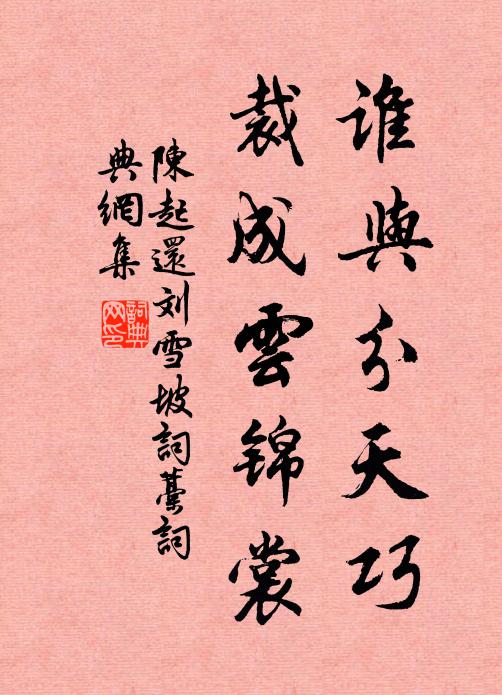 誰與分天巧
裁成雲錦裳
陳起還刘雪坡詞藁詞
典網集
詞典网印